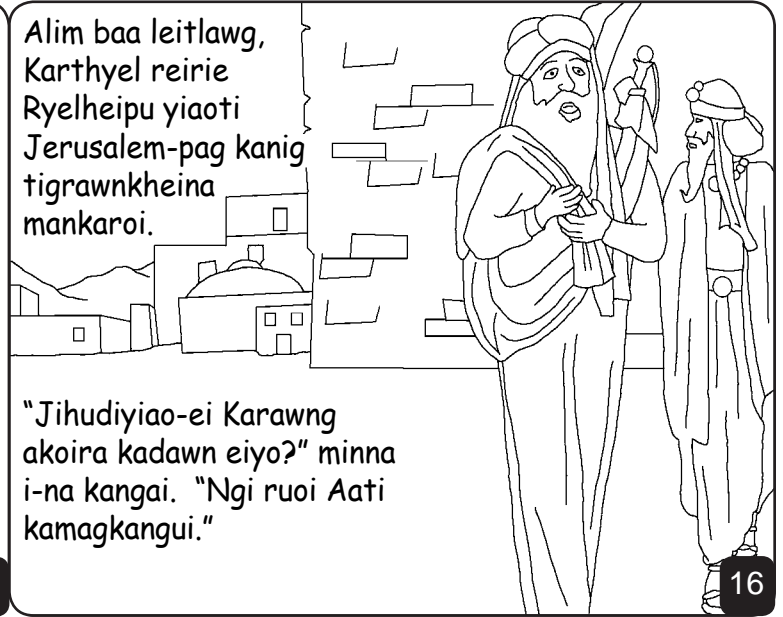 Alim baa leitlawg,
Karthyel reirie
Ryelheipu yiaoti
Jerusalem-pag kanig
tigrawnkheina
mankaroi.
“Jihudiyiao-ei Karawng
akoira kadawn eiyo?” minna
i-na kangai.  “Ngi ruoi Aati
kamagkangui.”
16